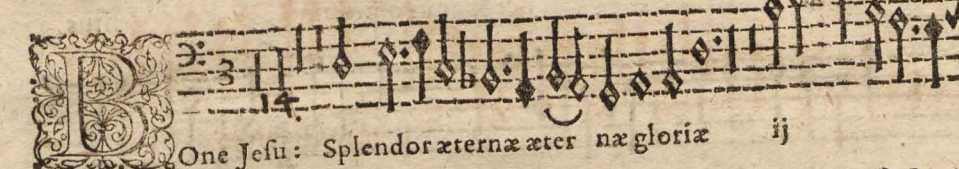 3
14.
BOne Jeſu: Splendor æternæ æter næ gloriæ ij